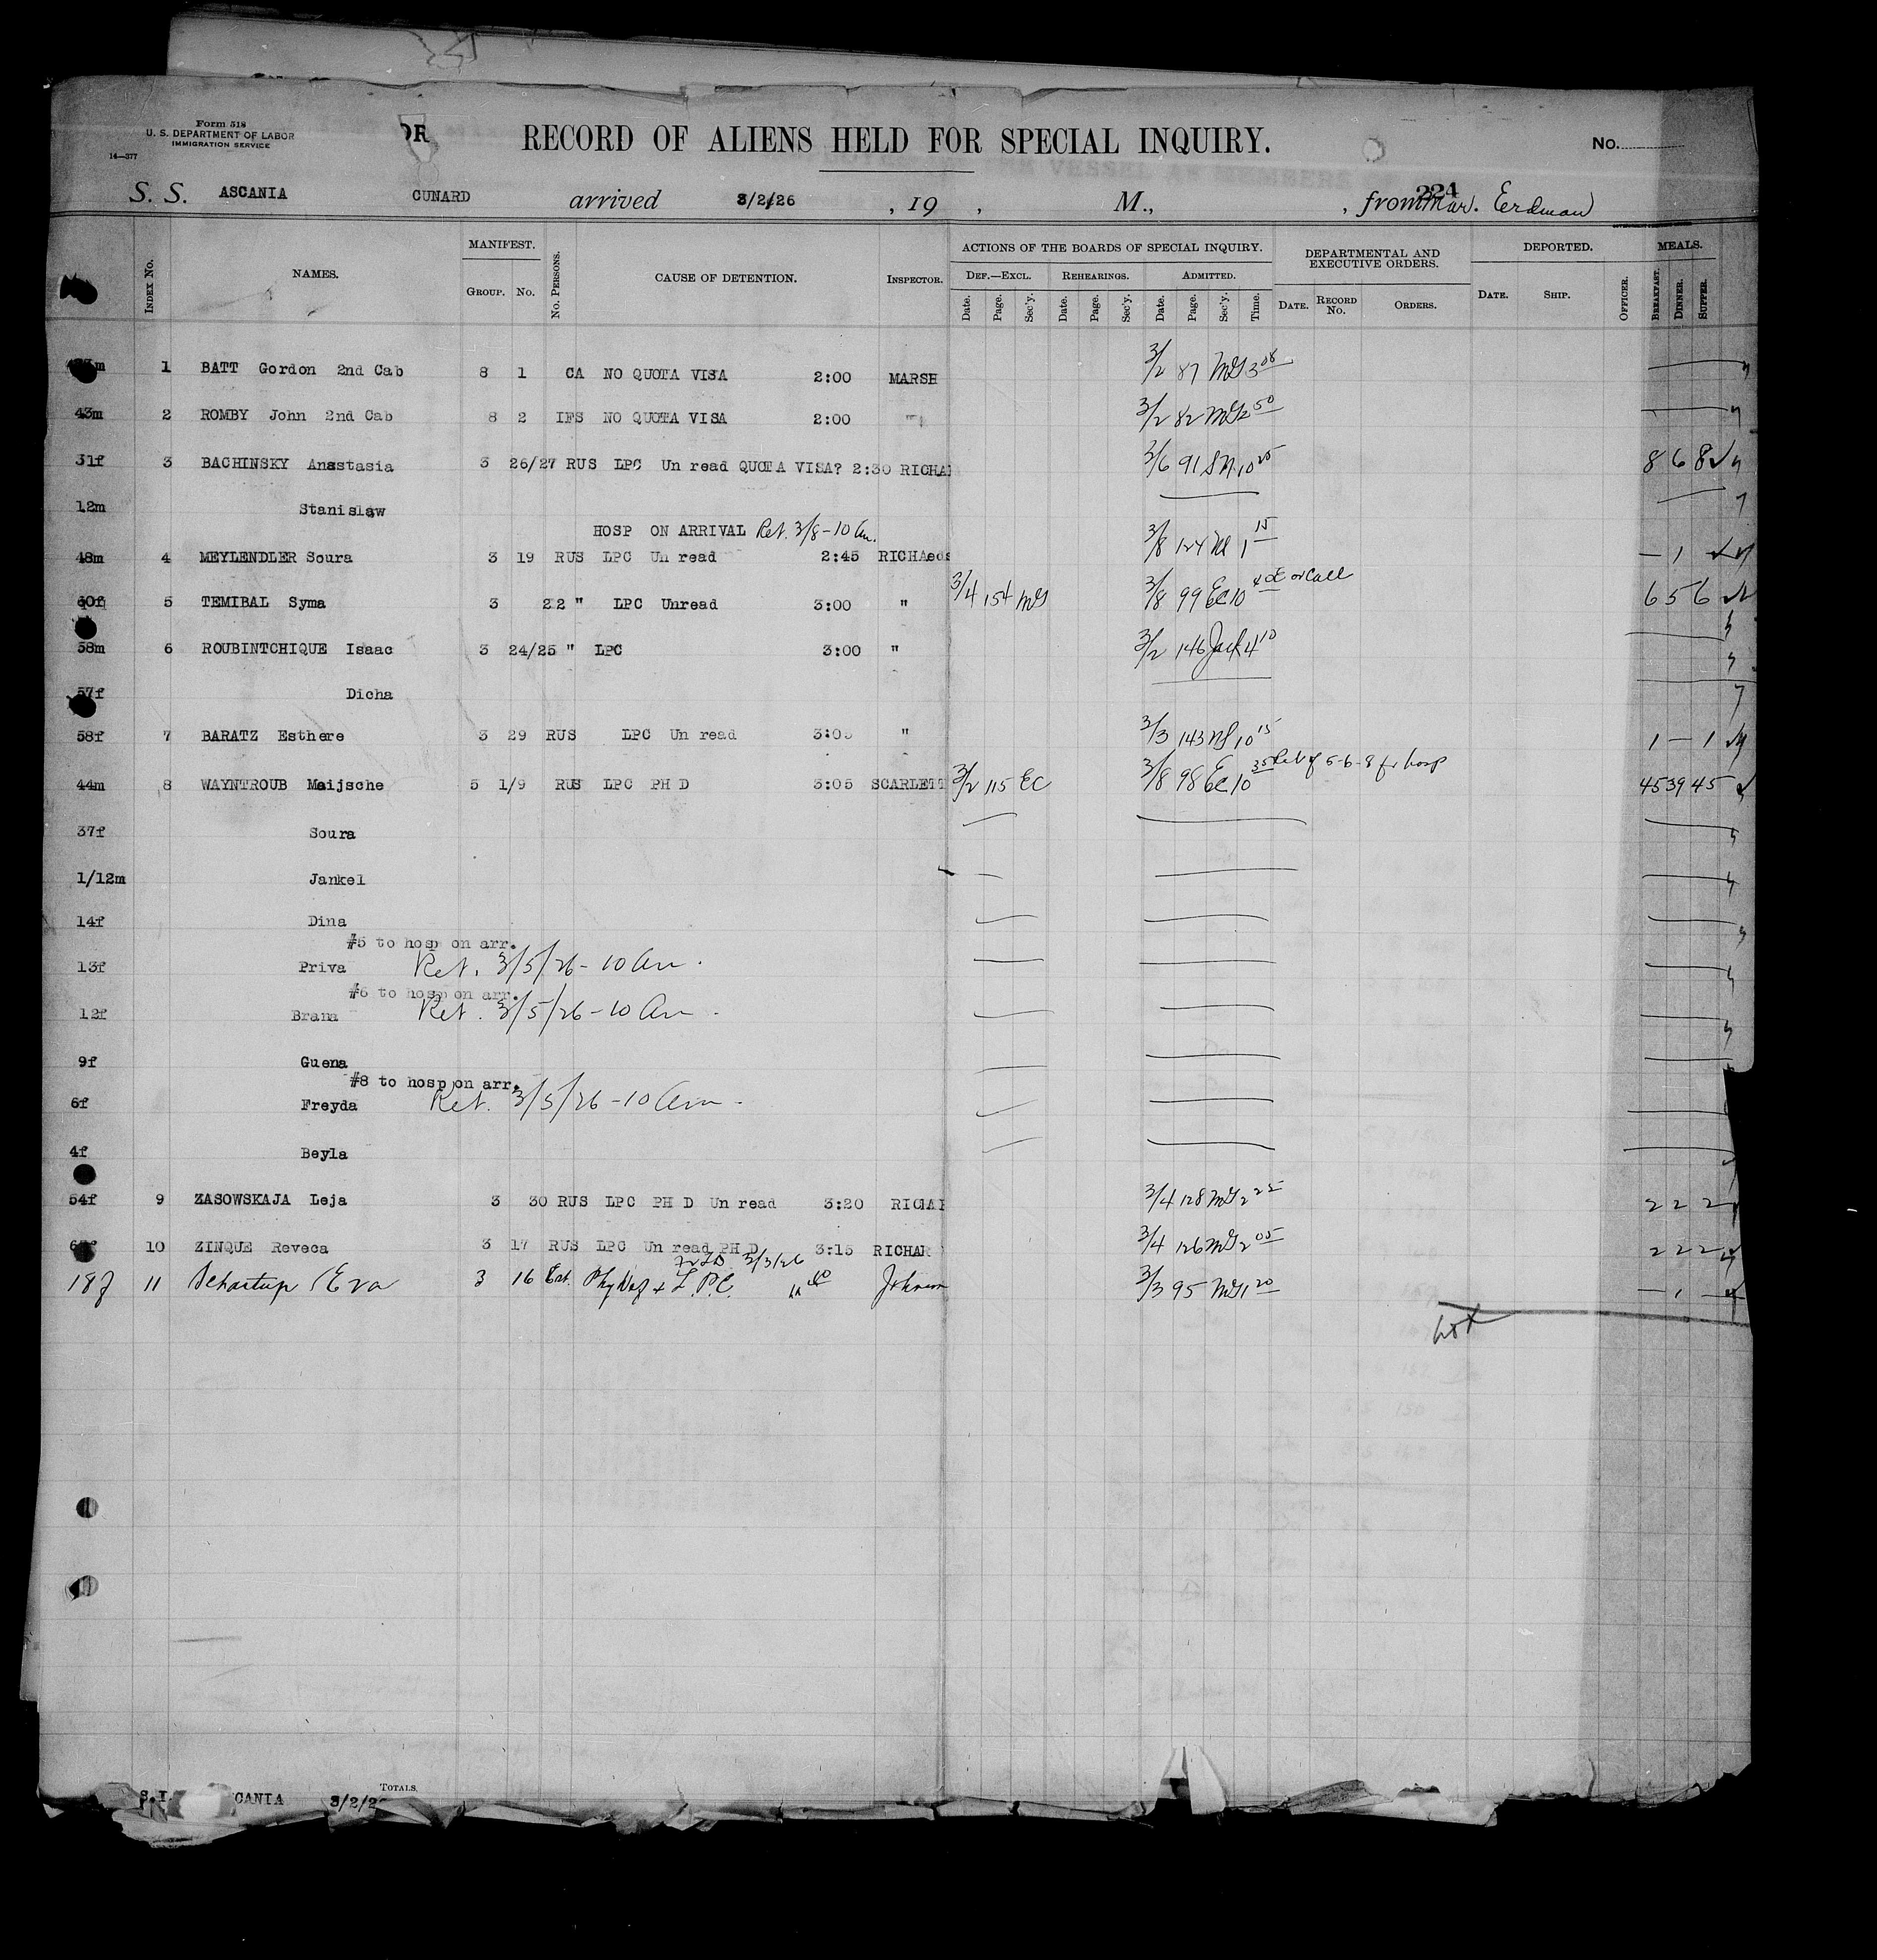 Form 518
U. S. DEPARTMENT OF LABOR
IMMIGRATION SERVICE
14—377
OR
RECORD OF ALIENS HELD FOR SPECIAL INQUIRY.
No.
S. S. ASCANIA CUNARD arrived 3/2/26 , 19 , M., , from Erdman
224
INDEX No. NAMES. MANIFEST. GROUP. No. No. PERSONS. CAUSE OF DETENTION. INSPECTOR. ACTIONS OF THE BOARDS OF SPECIAL INQUIRY. DEPARTMENTAL AND EXECUTIVE ORDERS. DEPORTED. MEALS.
DEF.—EXCL. REHEARINGS. ADMITTED.
Date. Page. Sec'y. Date. Page. Sec'y. Date. Page. Sec'y. Time. DATE. RECORD No. ORDERS. DATE. SHIP. OFFICER. BREAKFAST. DINNER. SUPPER.
1 BATT Gordon 2nd Cab 8 1 CA NO QUOTA VISA 2:00 MARSH 3/2 87 3 08
43m 2 ROMBY John 2nd Cab 8 2 IFS NO QUOTA VISA 2:00 " 3/2 82 2 50
31f 3 BACHINSKY Anastasia 3 26/27 RUS LPC Un read QUOTA VISA? 2:30 RICHA 3/6 91 10 25 8 6 8
12m Stanislaw
HOSP ON ARRIVAL Ret. 3/8-10 Am.
48m 4 MEYLENDLER Soura 3 19 RUS LPC Un read 2:45 RICHAeds 3/8 124 1 15 — 1
5 TEMIBAL Syma 3 22 " LPC Unread 3:00 " 3/4 154 3/8 99 EC 10 6 5 6
58m 6 ROUBINTCHIQUE Isaac 3 24/25 " LPC 3:00 " 3/2 146 Jack 4 10
57f Dicha
58f 7 BARATZ Esthere 3 29 RUS LPC Un read 3:05 " 3/3 143 10 15 1 — 1
44m 8 WAYNTROUB Maijsche 5 1/9 RUS LPC PH D 3:05 SCARLETT 3/2 115 EC 3/8 98 EC 10 35 5-6-8 fr hosp 45 39 45
37f Soura
1/12m Jankel
14f Dina
#5 to hosp on arr.
13f Priva Ret. 3/5/26 - 10 Am.
#6 to hosp on arr.
12f Brana Ret. 3/5/26 - 10 Am.
9f Guena
#8 to hosp on arr.
6f Freyda Ret. 3/5/26 - 10 Am.
4f Beyla
54f 9 ZASOWSKAJA Leja 3 30 RUS LPC PH D Un read 3:20 RICHAR 3/4 128 2 25 2 2 2
10 ZINQUE Reveca 3 17 RUS LPC Un read PH D 3:15 RICHAR 3/4 126 2 05 2 2 2
3/3/26
18f 11 Eva 3 16 Phy Def + L.P.C. Johnson 3/3 95 1 20 — 1 —
TOTALS.
S.I. CANIA 3/2/2